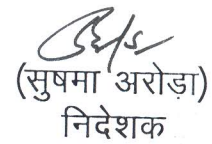 (सुषमा अरोड़ा)
निदेशक